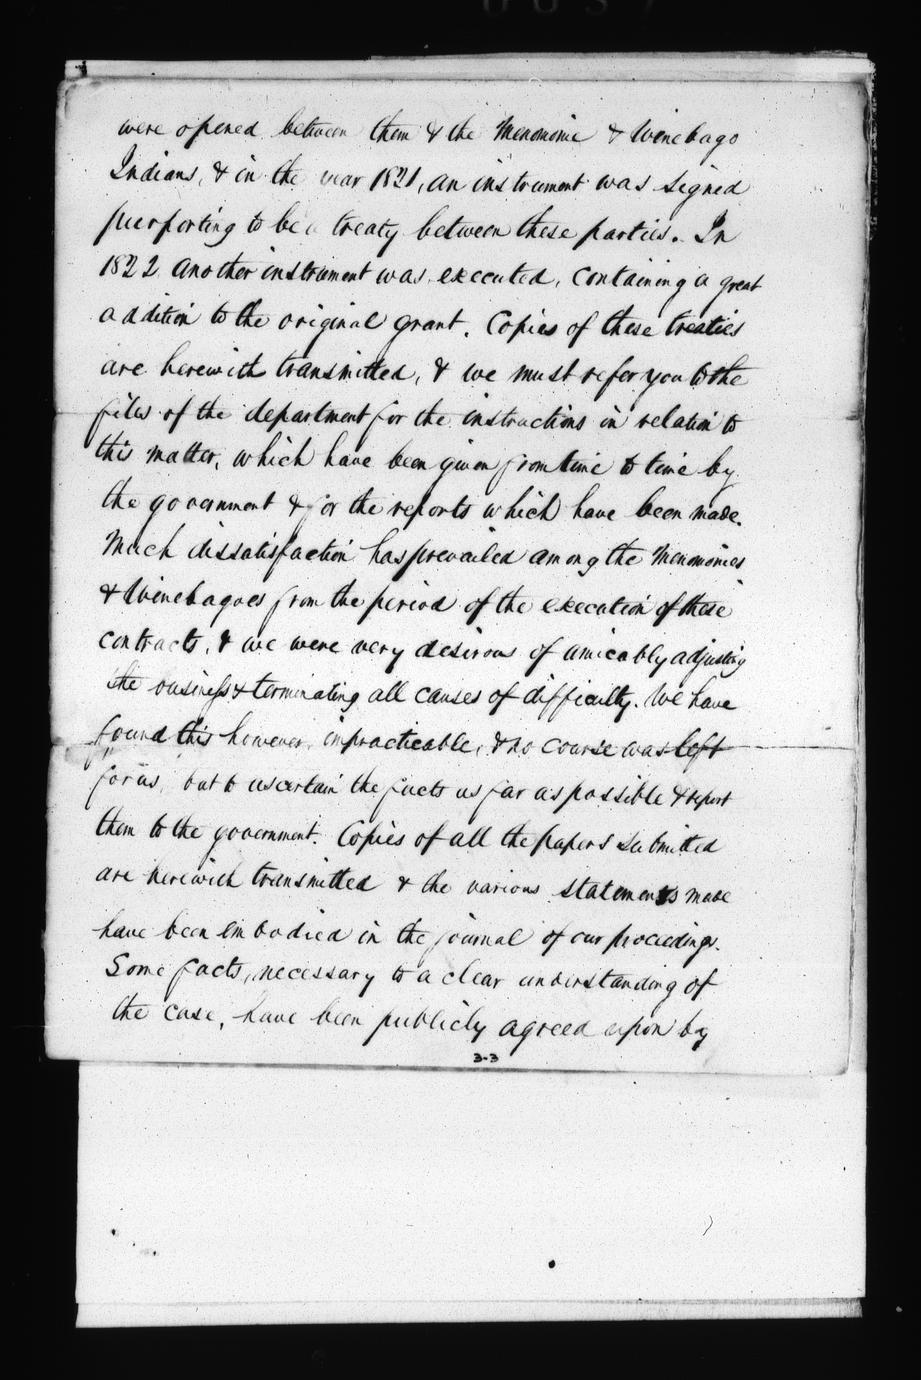 were opened between them & the Menomonie & Winebago
Indians, & in the year 1821, an instrument was signed
purporting to be a treaty between these parties. In
1822 another instrument was executed, containing a great
addition to the original grant. Copies of these treaties
are herewith transmitted, & we must refer you to the
files of the department for the instructions in relation to
this matter, which have been given from time to time by
the government & for the reports which have been made.
Much dissatisfaction has prevailed among the Menomonies
& Winebagoes from the period of the execution of these
contracts, & we were very desirous of amicably adjusting
the business & terminating all causes of difficulty. We have
found this however, impracticable, & no course was left
for us, but to ascertain the facts as far as possible & report
them to the government. Copies of all the papers submitted
are herewith transmitted & the various statements made
have been embodied in the journal of our proceedings.
Some facts, necessary to a clear understanding of
the case, have been publicly agreed upon by
3-3